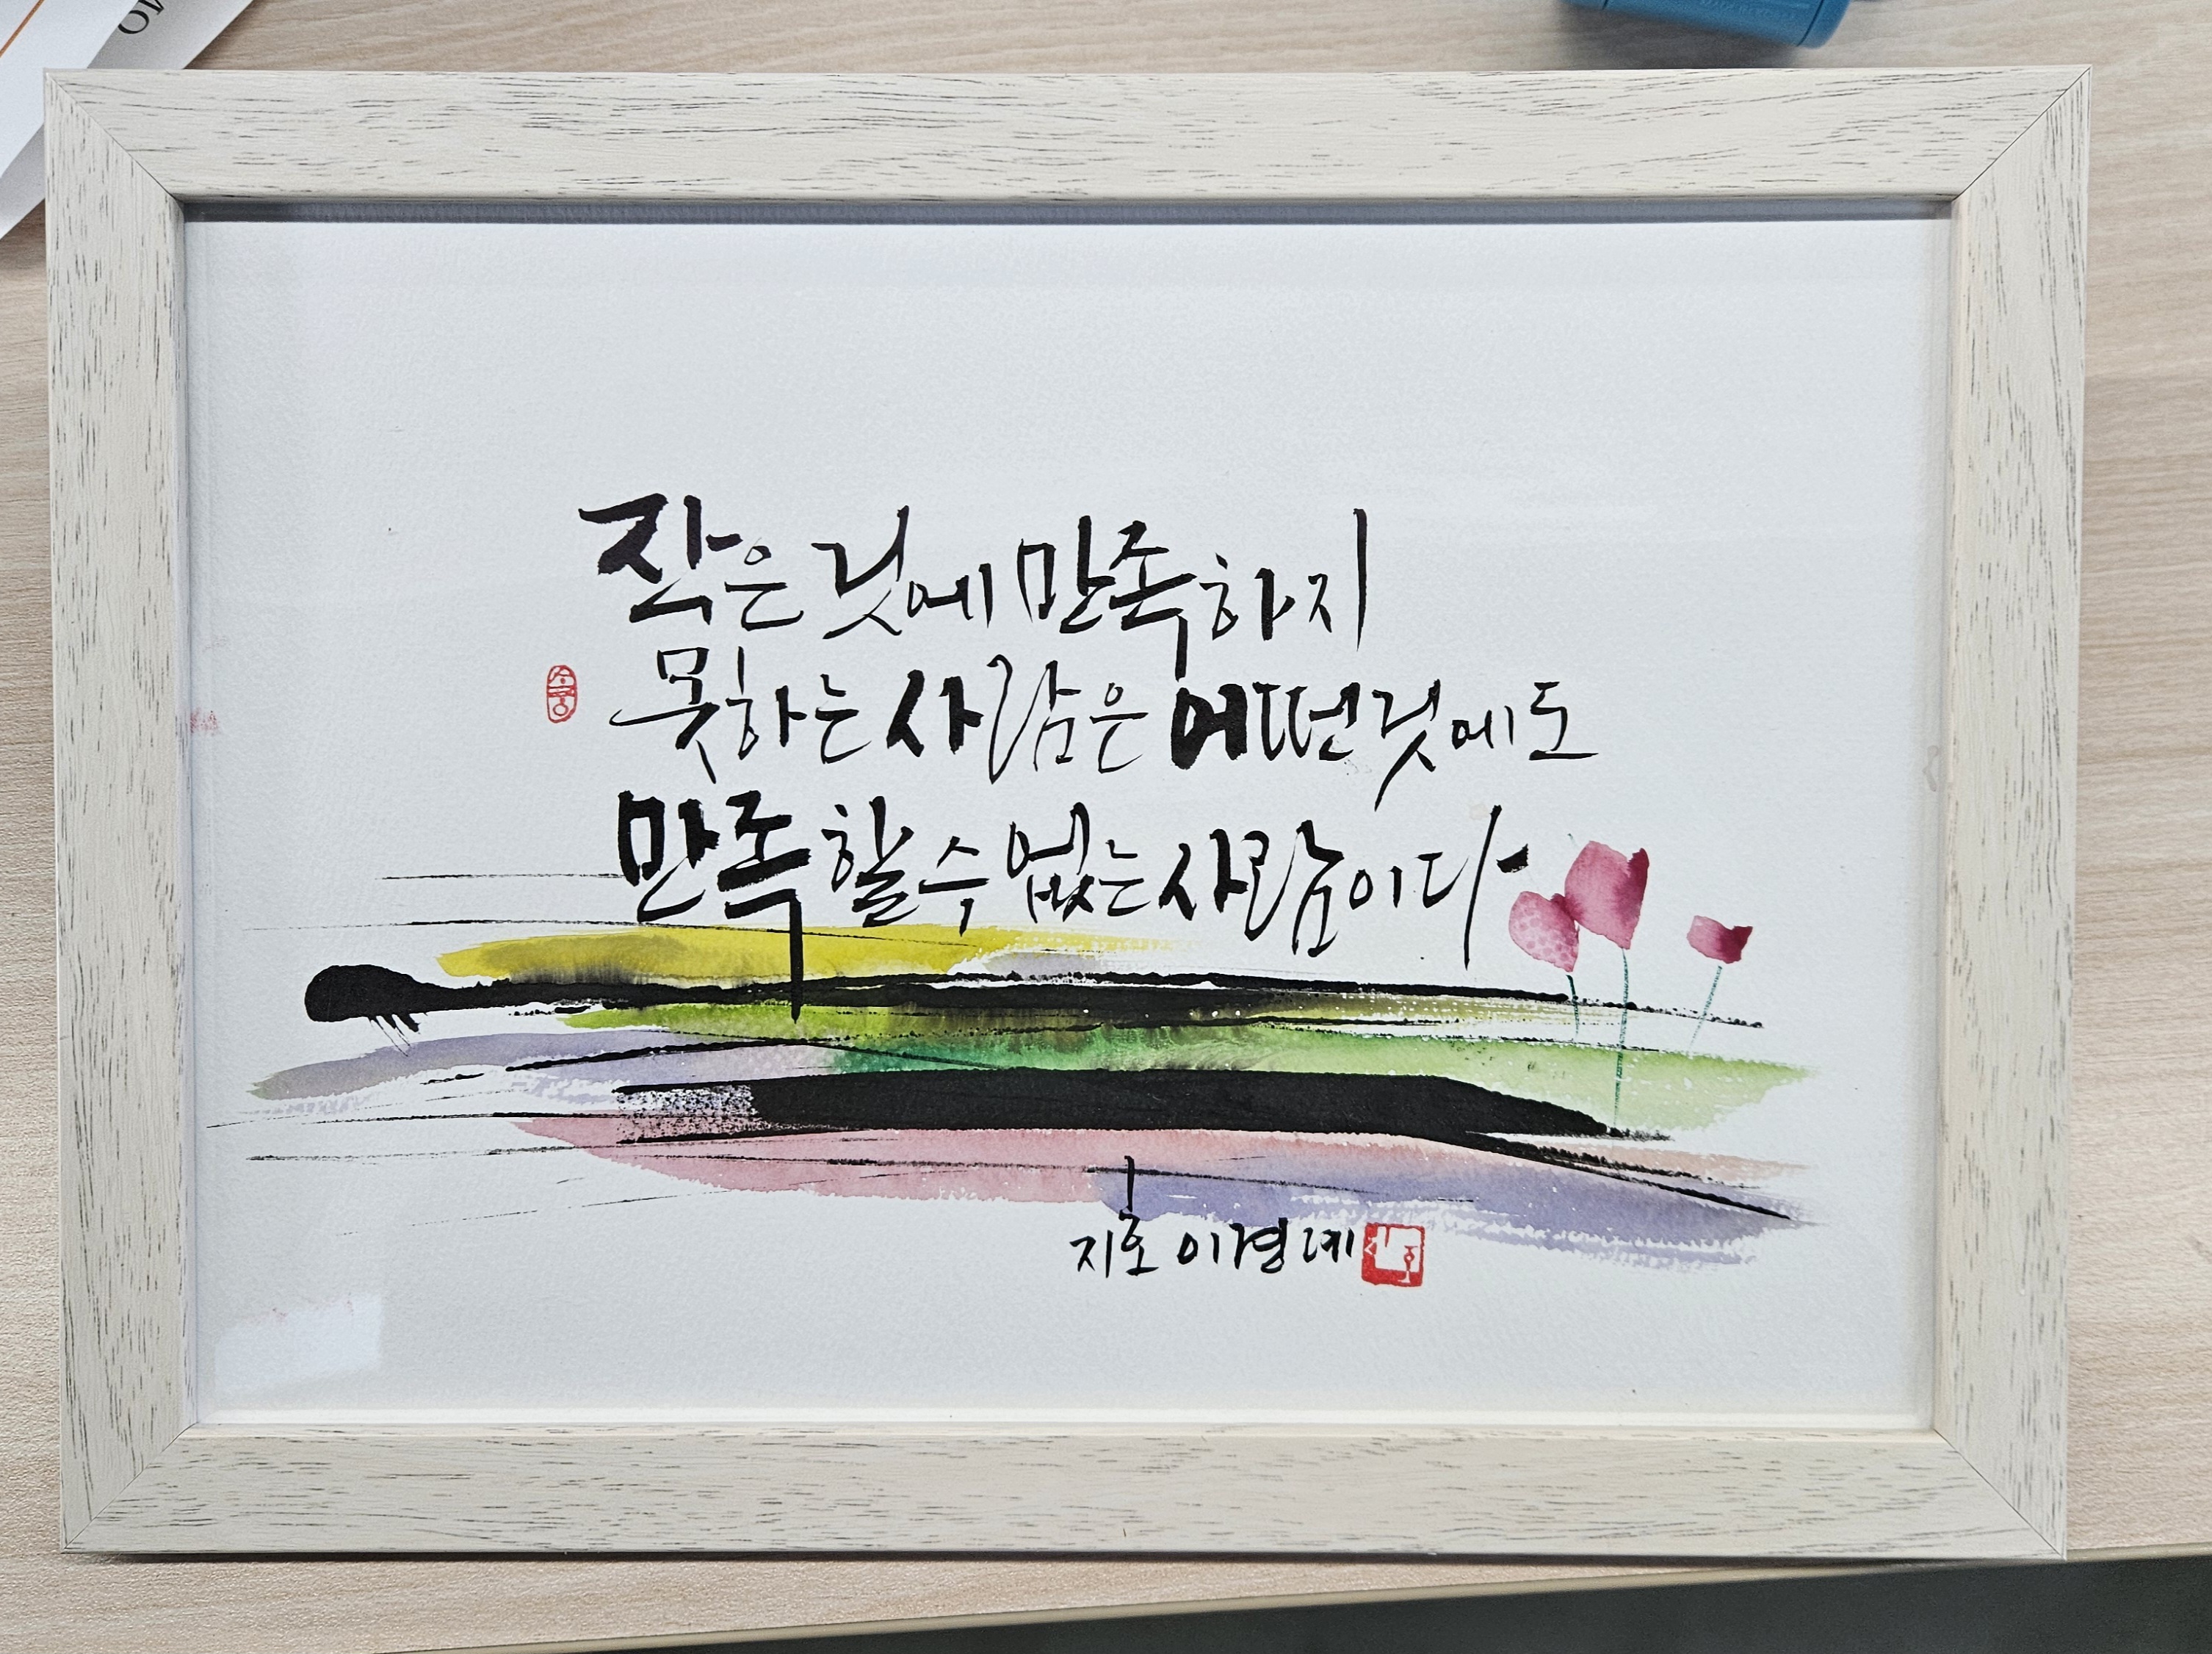 작은 것에 만족하지
못하는 사람은 어떤것에도
만족할 수 없는 사람이다
지호 이경예